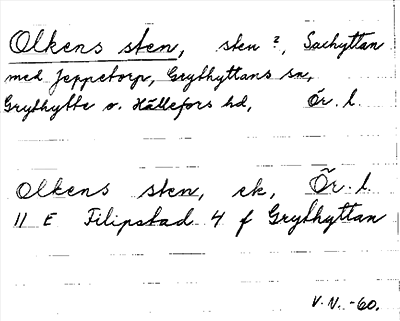 Olkens sten, sten ?, Saxhyttan
med Jeppetorp, Grythyttans sn,
Grythytte o. Hällefors hd, Ör. l.
Olkens sten, ek, Ör. l.
11 E Filipstad 4 f Grythyttan
V.V. -60.